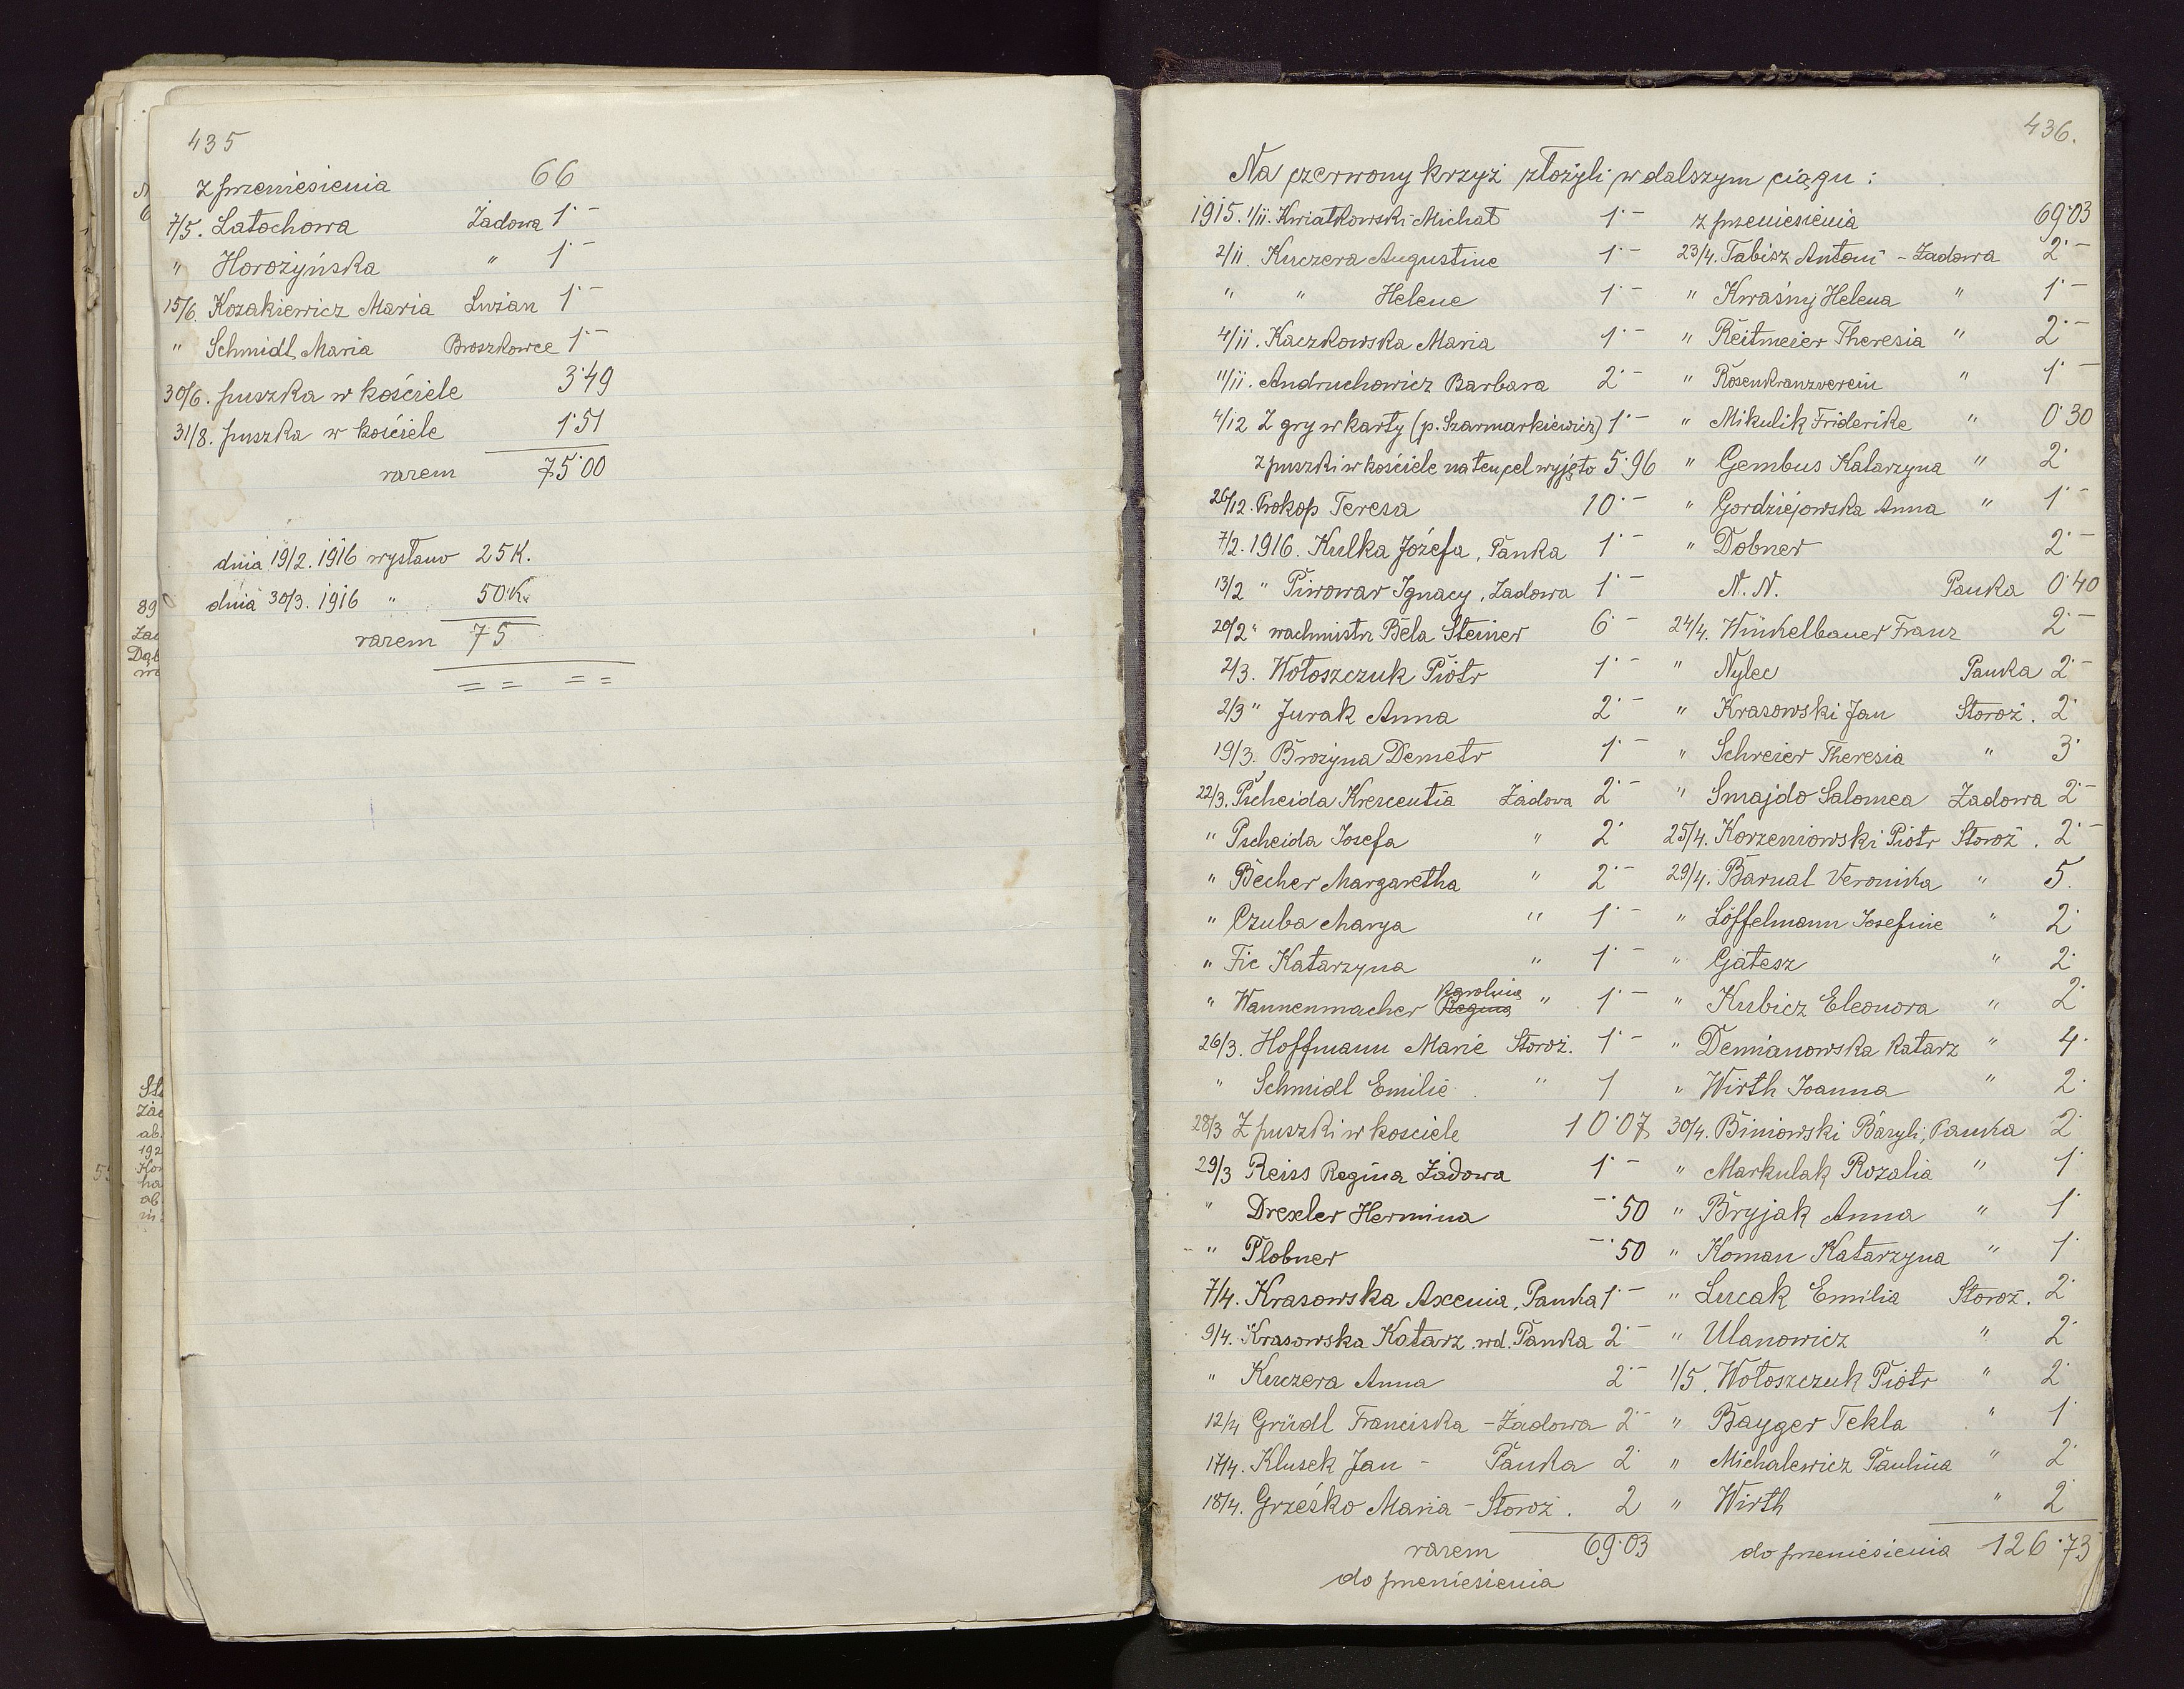 435
z przeniesienia 66
7/5. Latochowa Żadowa 1·–
" Horożyńska " 1·–
15/6. Kozakiewicz Maria Lużan 1·–
" Schmidl Maria Broszkowce 1·–
30/6. puszka w kościele 3·49
31/8. puszka w kościele 1·51
razem 75·00
dnia 19/2. 1916 wysłano 25 K.
dnia 30/3. 1916 " 50 K.
razem 75
436.
Na czerwony krzyż złożyli w dalszym ciągu:
1915. 1/11. Kwiatkowski Michał 1·–
2/11. Kuczera Augustine 1·–
" " Helene 1·–
4/11. Kaczkowska Maria 1·–
11/11. Andruchowicz Barbara 2·–
4/12 Z gry w karty (p. Szarmarkiewicz) 1·–
z puszki w kościele na ten cel wyjęto 5·96
26/12. Prokop Teresa 10·–
7/2. 1916. Kulka Józefa, Panka 1·–
13/2 " Piwowar Ignacy, Żadowa 1·–
20/2 " wachmistrz Bela Steiner 6·–
2/3. Wołoszczuk Piotr 1·–
2/3 " Jurak Anna 2·–
19/3. Brożyna Demetr 1·–
22/3. Pscheida Krescentia Żadowa 2·–
" Pscheida Josefa " 2·
" Becher Margaretha " 2·–
" Czuba Marya " 1·–
" Fic Katarzyna " 1·–
" Wannenmacher Regina Karolina " 1·–
26/3. Hoffmann Marie Storoż. 1·–
" Schmidl Emilie " 1
28/3 Z puszki w kosciele 10·07
29/3 Reiss Regina Żadowa 1·–
" Drexler Hermina –·50
" Plobner –·50
7/4. Krasowska Axenia, Panka 1·–
9/4. Krasowska Katarz. wd. Panka 2·–
" Kuczera Anna 2·–
12/4 Gründl Franciska – Żadowa 2·–
17/4. Klusek Jan – Panka 2·
18/4. Grześko Maria – Storoż. 2
razem 69·03
do przeniesienia
z przeniesienia 69·03
23/4. Tabisz Antoni – Żadowa 2·–
" Kwaśny Helena " 1·–
" Reitmeier Theresia " 2·–
" Rosenkranzverein " 1·–
" Mikulik Friderike " 0·30
" Gembus Katarzyna " 2·
" Gordziejowska Anna " 1·–
" Dobner 2·–
N. N. Panka 0·40
24/4. Winkelbauer Franz 2·–
" Nylec Panka 2·–
" Krasowski Jan Storoż. 2·
" Schreier Theresia " 3·
" Smajdo Salomea Żadowa 2·–
25/4. Korzeniowski Piotr Storoż. 2·–
29/4. Barnat Veronika " 5.
" Löffelmann Josefine " 2·
" Gátesz " 2·
" Kubicz Eleonora " 2·
" Demianowska Katarz " 4·
" Wirth Joanna " 2·
30/4. Biniowski Bazyli, Panka 2·
" Markulak Rozalia " 1·
" Bryjak Anna " 1·
" Koman Katarzyna " 1·
" Lucak Emilia Storoż. 2·
" Ulanowicz " 2·
1/5. Wołoszczuk Piotr " 2·
" Bayger Tekla " 1·
" Michalewicz Paulina " 2·
" Wirth " 2·
do przeniesienia 126·73